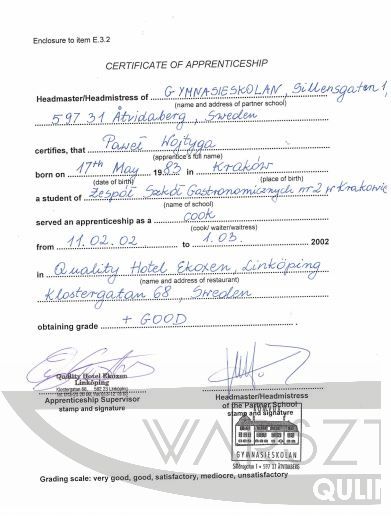 Enclosure to item E.3.2
CERTIFICATE OF APPRENTICESHIP
Headmaster/Headmistress of GYMNASIESKOLAN, Sillensgatan 1,
(name and address of partner school)
597 31 Åtvidaberg, Sweden
certifies, that Paweł Wojtyga
(apprentice's full name)
born on 17th May 1983 in Kraków
(date of birth) (place of birth)
a student of Zespół Szkół Gastronomicznych nr 2 w Krakowie
(name of school)
served an apprenticeship as a cook
(cook/ waiter/waitress)
from 11.02.02 to 1.03. 2002
in Quality Hotel Ekoxen, Linköping
(name and address of restaurant)
Klostergatan 68, Sweden
obtaining grade + GOOD
Quality Hotel Ekoxen
Linköping
Klostergatan 68, 582 23 Linköping
Apprenticeship Supervisor
stamp and signature
Headmaster/Headmistress
of the Partner School
stamp and signature
GYMNASIESKOLAN
Sillensgatan 1 • 597 31 ÅTVIDABERG
WARSZT
QULI
Grading scale: very good, good, satisfactory, mediocre, unsatisfactory